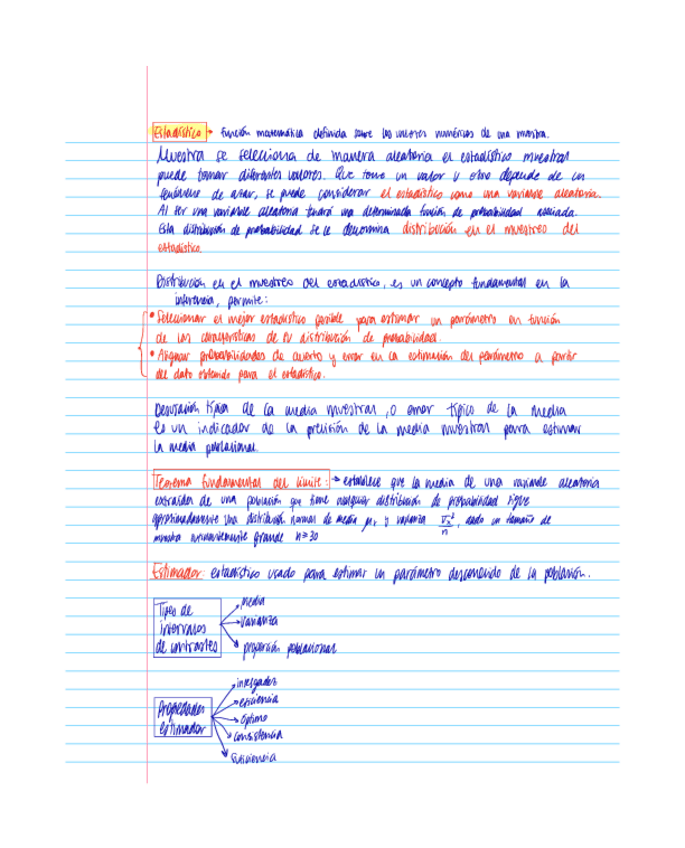 Estadístico → función matemática definida sobre los valores numéricos de una muestra.
Muestra se selecciona de manera aleatoria el estadístico muestral
puede tomar diferentes valores. Que tome un valor u otro depende de un
fenómeno de azar, se puede considerar el estadístico como una variable aleatoria.
Al ser una variable aleatoria tendrá una determinada función de probabilidad asociada.
Esta distribución de probabilidad se le denomina distribución en el muestreo del
estadístico.
Distribución en el muestreo del estadístico, es un concepto fundamental en la
inferencia, permite:
• Seleccionar el mejor estadístico posible para estimar un parámetro en función
de las características de su distribución de probabilidad.
• Asignar probabilidades de acierto y error en la estimación del parámetro a partir
del dato obtenido para el estadístico.
Desviación típica de la media muestral, o error típico de la media
es un indicador de la precisión de la media muestral para estimar
la media poblacional.
Teorema fundamental del límite: → establece que la media de una variable aleatoria
extraída de una población que tiene cualquier distribución de probabilidad sigue
aproximadamente una distribución normal de media μx y varianza σx²/n, dado un tamaño de
muestra suficientemente grande n≥30
Estimador: estadístico usado para estimar un parámetro desconocido de la población.
Tipos de intervalos de contrastes
→ media
→ varianza
→ proporción poblacional
Propiedades estimador
→ insesgadez
→ eficiencia
→ óptimo
→ consistencia
→ suficiencia